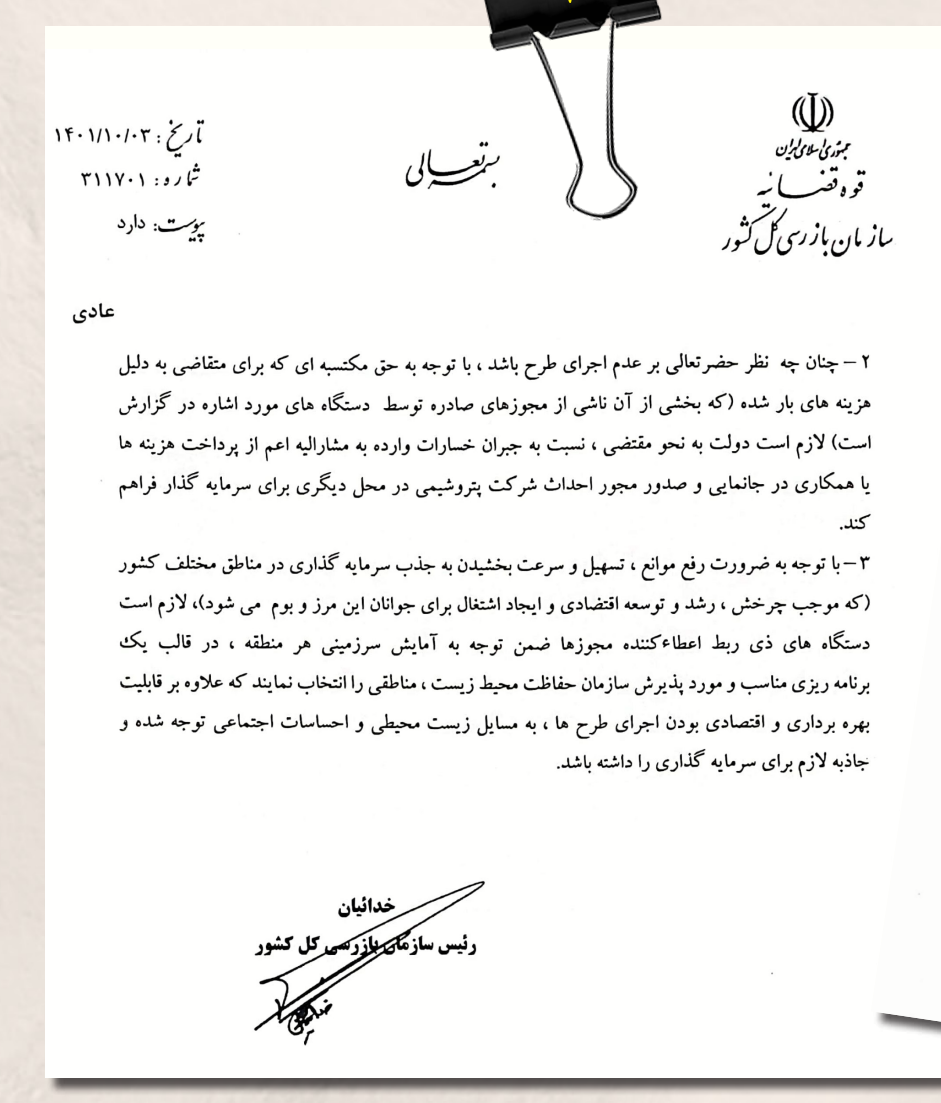 جمهوری اسلامی ایران
قوه قضائیه
سازمان بازرسی کل کشور
بسمه تعالی
تاریخ: ۱۴۰۱/۱۰/۰۳
شماره: ۳۱۱۷۰۱
پیوست: دارد
عادی
۲ – چنان چه نظر حضرتعالی بر عدم اجرای طرح باشد ، با توجه به حق مکتسبه ای که برای متقاضی به دلیل
هزینه های بار شده (که بخشی از آن ناشی از مجوزهای صادره توسط دستگاه های مورد اشاره در گزارش
است) لازم است دولت به نحو مقتضی ، نسبت به جبران خسارات وارده به مشارالیه اعم از پرداخت هزینه ها
یا همکاری در جانمایی و صدور مجور احداث شرکت پتروشیمی در محل دیگری برای سرمایه گذار فراهم
کند.
۳ – با توجه به ضرورت رفع موانع ، تسهیل و سرعت بخشیدن به جذب سرمایه گذاری در مناطق مختلف کشور
(که موجب چرخش ، رشد و توسعه اقتصادی و ایجاد اشتغال برای جوانان این مرز و بوم می شود)، لازم است
دستگاه های ذی ربط اعطاءکننده مجوزها ضمن توجه به آمایش سرزمینی هر منطقه ، در قالب یک
برنامه ریزی مناسب و مورد پذیرش سازمان حفاظت محیط زیست ، مناطقی را انتخاب نمایند که علاوه بر قابلیت
بهره برداری و اقتصادی بودن اجرای طرح ها ، به مسایل زیست محیطی و احساسات اجتماعی توجه شده و
جاذبه لازم برای سرمایه گذاری را داشته باشد.
خدائیان
رئیس سازمان بازرسی کل کشور